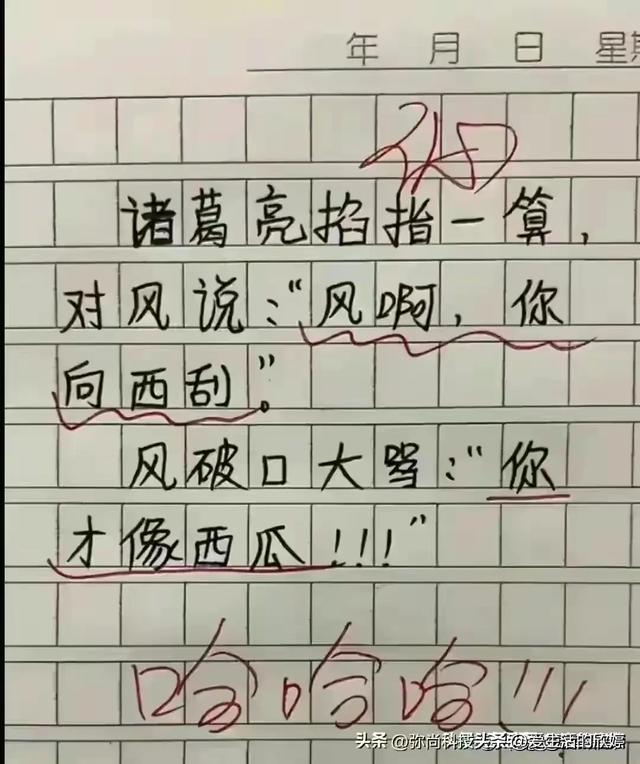 年 月 日 星期
诸葛亮掐指一算，
对风说：“风啊，你
向西刮”。
风破口大骂：“你
才像西瓜！！！”
哈哈哈！！！
头条 @爱生活的欣婷